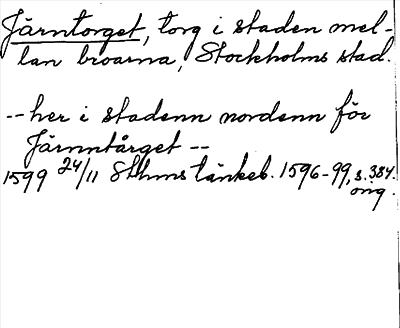 Järntorget, torg i staden mel-
lan broarna, Stockholms stad.
-- her i stadenn nordenn för
Järnntårget --
1599 24/11 Sthms tänkeb. 1596-99, s. 384.
orig.